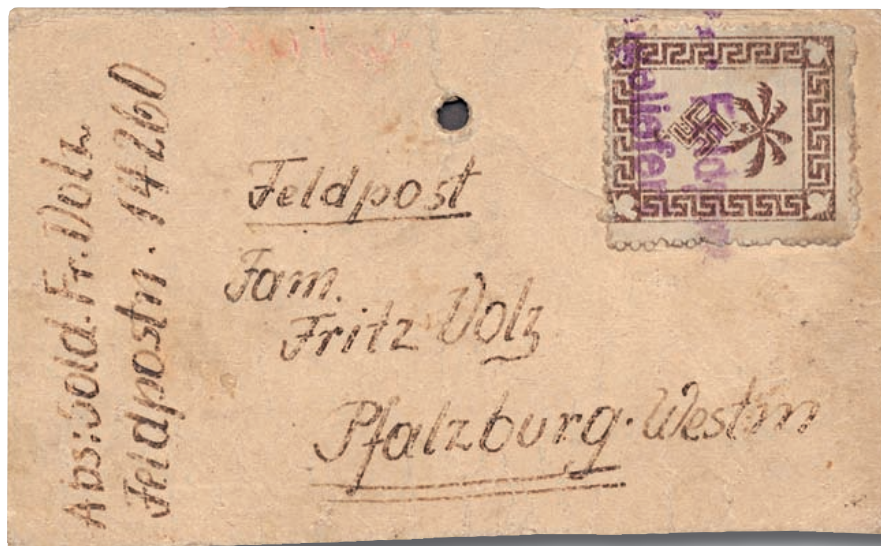 Abs: Sold. Fr. Volz
Feldpostn. 14260
Feldpost
Fam.
Fritz Volz
Pfalzburg. Westm